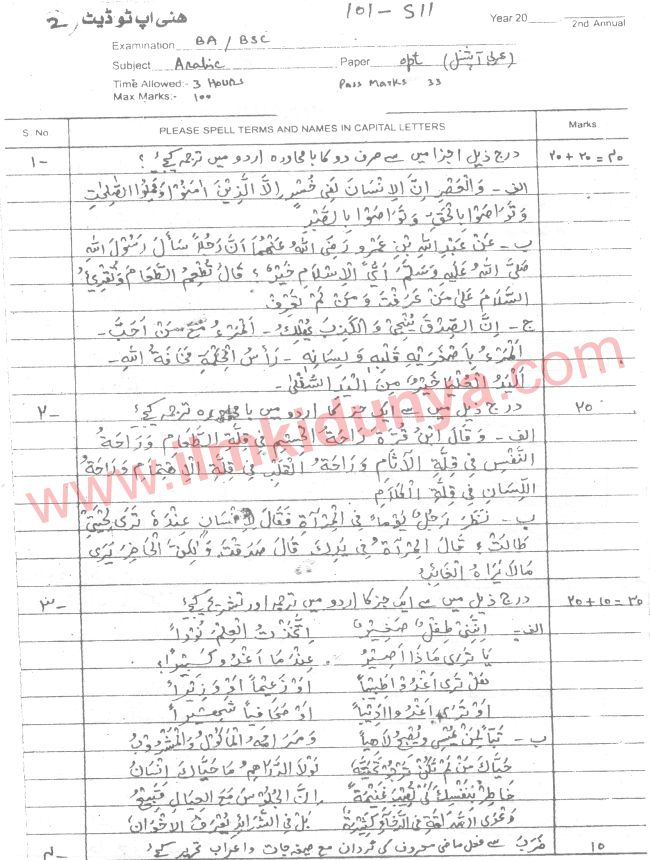 2, ھنی اپ ٹو ڈیٹ
101 - S11
Year 20 2nd Annual
Examination BA / BSC
Subject Arabic Paper opt (عربی آپشنل)
Time Allowed:- 3 Hours Pass Marks 33
Max Marks:- 100
S. No PLEASE SPELL TERMS AND NAMES IN CAPITAL LETTERS Marks
۱- درج ذیل اجزا میں سے صرف دو کا بامحاورہ اردو میں ترجمہ کیجئے؟ ۲۰+۲۰=۴۰
الف - وَالْعَصْرِ اِنَّ الْاِنْسَانَ لَفِیْ خُسْرٍ اِلَّا الَّذِیْنَ اٰمَنُوْا وَعَمِلُوا الصّٰلِحٰتِ
وَتَوَاصَوْا بِالْحَقِّ وَتَوَاصَوْا بِالصَّبْرِ
ب - عَنْ عَبْدِ اللهِ بْنِ عَمْرٍو رَضِیَ اللهُ عَنْهُمَا اَنَّ رَجُلًا سَأَلَ رَسُوْلَ اللهِ
صَلَّى اللهُ عَلَیْهِ وَسَلَّمَ اَیُّ الْاِسْلَامِ خَیْرٌ؟ قَالَ تُطْعِمُ الطَّعَامَ وَتُقْرِیُٔ
السَّلَامَ عَلٰی مَنْ عَرَفْتَ وَمَنْ لَمْ تَعْرِفْ
ج - اِنَّ الصِّدْقَ یُنْجِیْ وَالْکَذِبَ یُهْلِكُ - اَلْمَرْءُ مَعَ مَنْ اَحَبَّ -
اَلْمَرْءُ بِاَصْغَرَیْهِ قَلْبِهٖ وَلِسَانِهٖ - رَأْسُ الْحِکْمَةِ مَخَافَةُ اللهِ -
اَلْیَدُ الْعُلْیَا خَیْرٌ مِنَ الْیَدِ السُّفْلٰی -
۲- درج ذیل میں سے ایک جز کا اردو میں بامحاورہ ترجمہ کیجئے ۲۰
الف - وَقَالَ ابْنُ قُرَّةَ رَاحَةُ الْجِسْمِ فِیْ قِلَّةِ الطَّعَامِ وَرَاحَةُ
النَّفْسِ فِیْ قِلَّةِ الْآثَامِ وَرَاحَةُ الْقَلْبِ فِیْ قِلَّةِ الْاِهْتِمَامِ وَرَاحَةُ
اللِّسَانِ فِیْ قِلَّةِ الْکَلَامِ
ب - نَظَرَ رَجُلٌ یَوْمًا فِی الْمِرْآةِ فَقَالَ لِاِنْسَانٍ عِنْدَهٗ تَرٰی لِحْیَتِیْ
طَالَتْ؟ قَالَ الْمِرْآةُ فِیْ یَدِكَ قَالَ صَدَقْتَ وَلٰکِنَّ الْحَاضِرَ یَرٰی
مَالَا یَرَاهُ الْغَائِبُ
۳- درج ذیل میں سے ایک جز کا اردو میں ترجمہ اور تشریح کیجئے ۲۰+۱۰=۳۰
الف - اِنَّنِیْ طِفْلٌ صَغِیْرٌ اِتَّخَذْتُ الْعِلْمَ نُوْرًا
یَا تَرٰی مَاذَا اَصِیْرُ عِنْدَ مَا اَغْدُو کَبِیْرًا؟
هَلْ تَرٰی اَغْدُوْ طَبِیْبًا اَوْ زَعِیْمًا اَوْ وَزِیْرًا
اَوْ تَرٰی اَغْدُو اَدِیْبًا اَوْ صَحَافِیًّا شَهِیْرًا
ب - تَبًّا لِمَنْ یُمْسِیْ وَیُصْبِحُ لَاهِیًا وَمَرَامُهُ الْمَأْکُوْلُ وَالْمَشْرُوْبُ
حَیَّاكَ مَنْ لَمْ تَکُنْ تَرْجُوْ تَحِیَّتَهٗ لَوْلَا الدَّرَاهِمُ مَا حَیَّاكَ اِنْسَانٌ
خَاطِرْ بِنَفْسِكَ کَیْ تُصِیْبَ غَنِیْمَةً اِنَّ الْجُلُوْسَ مَعَ الْعِیَالِ قَبِیْحٌ
فِی الرَّخَاءِ کَثِیْرَةٌ بَلْ فِی الشَّدَائِدِ تُعْرَفُ الْاِخْوَانُ
۴- ضَرَبَ سے فعل ماضی معروف کی گردان مع صیغہ جات واعراب تحریر کیجئے ۱۰
www.ilmkidunya.com